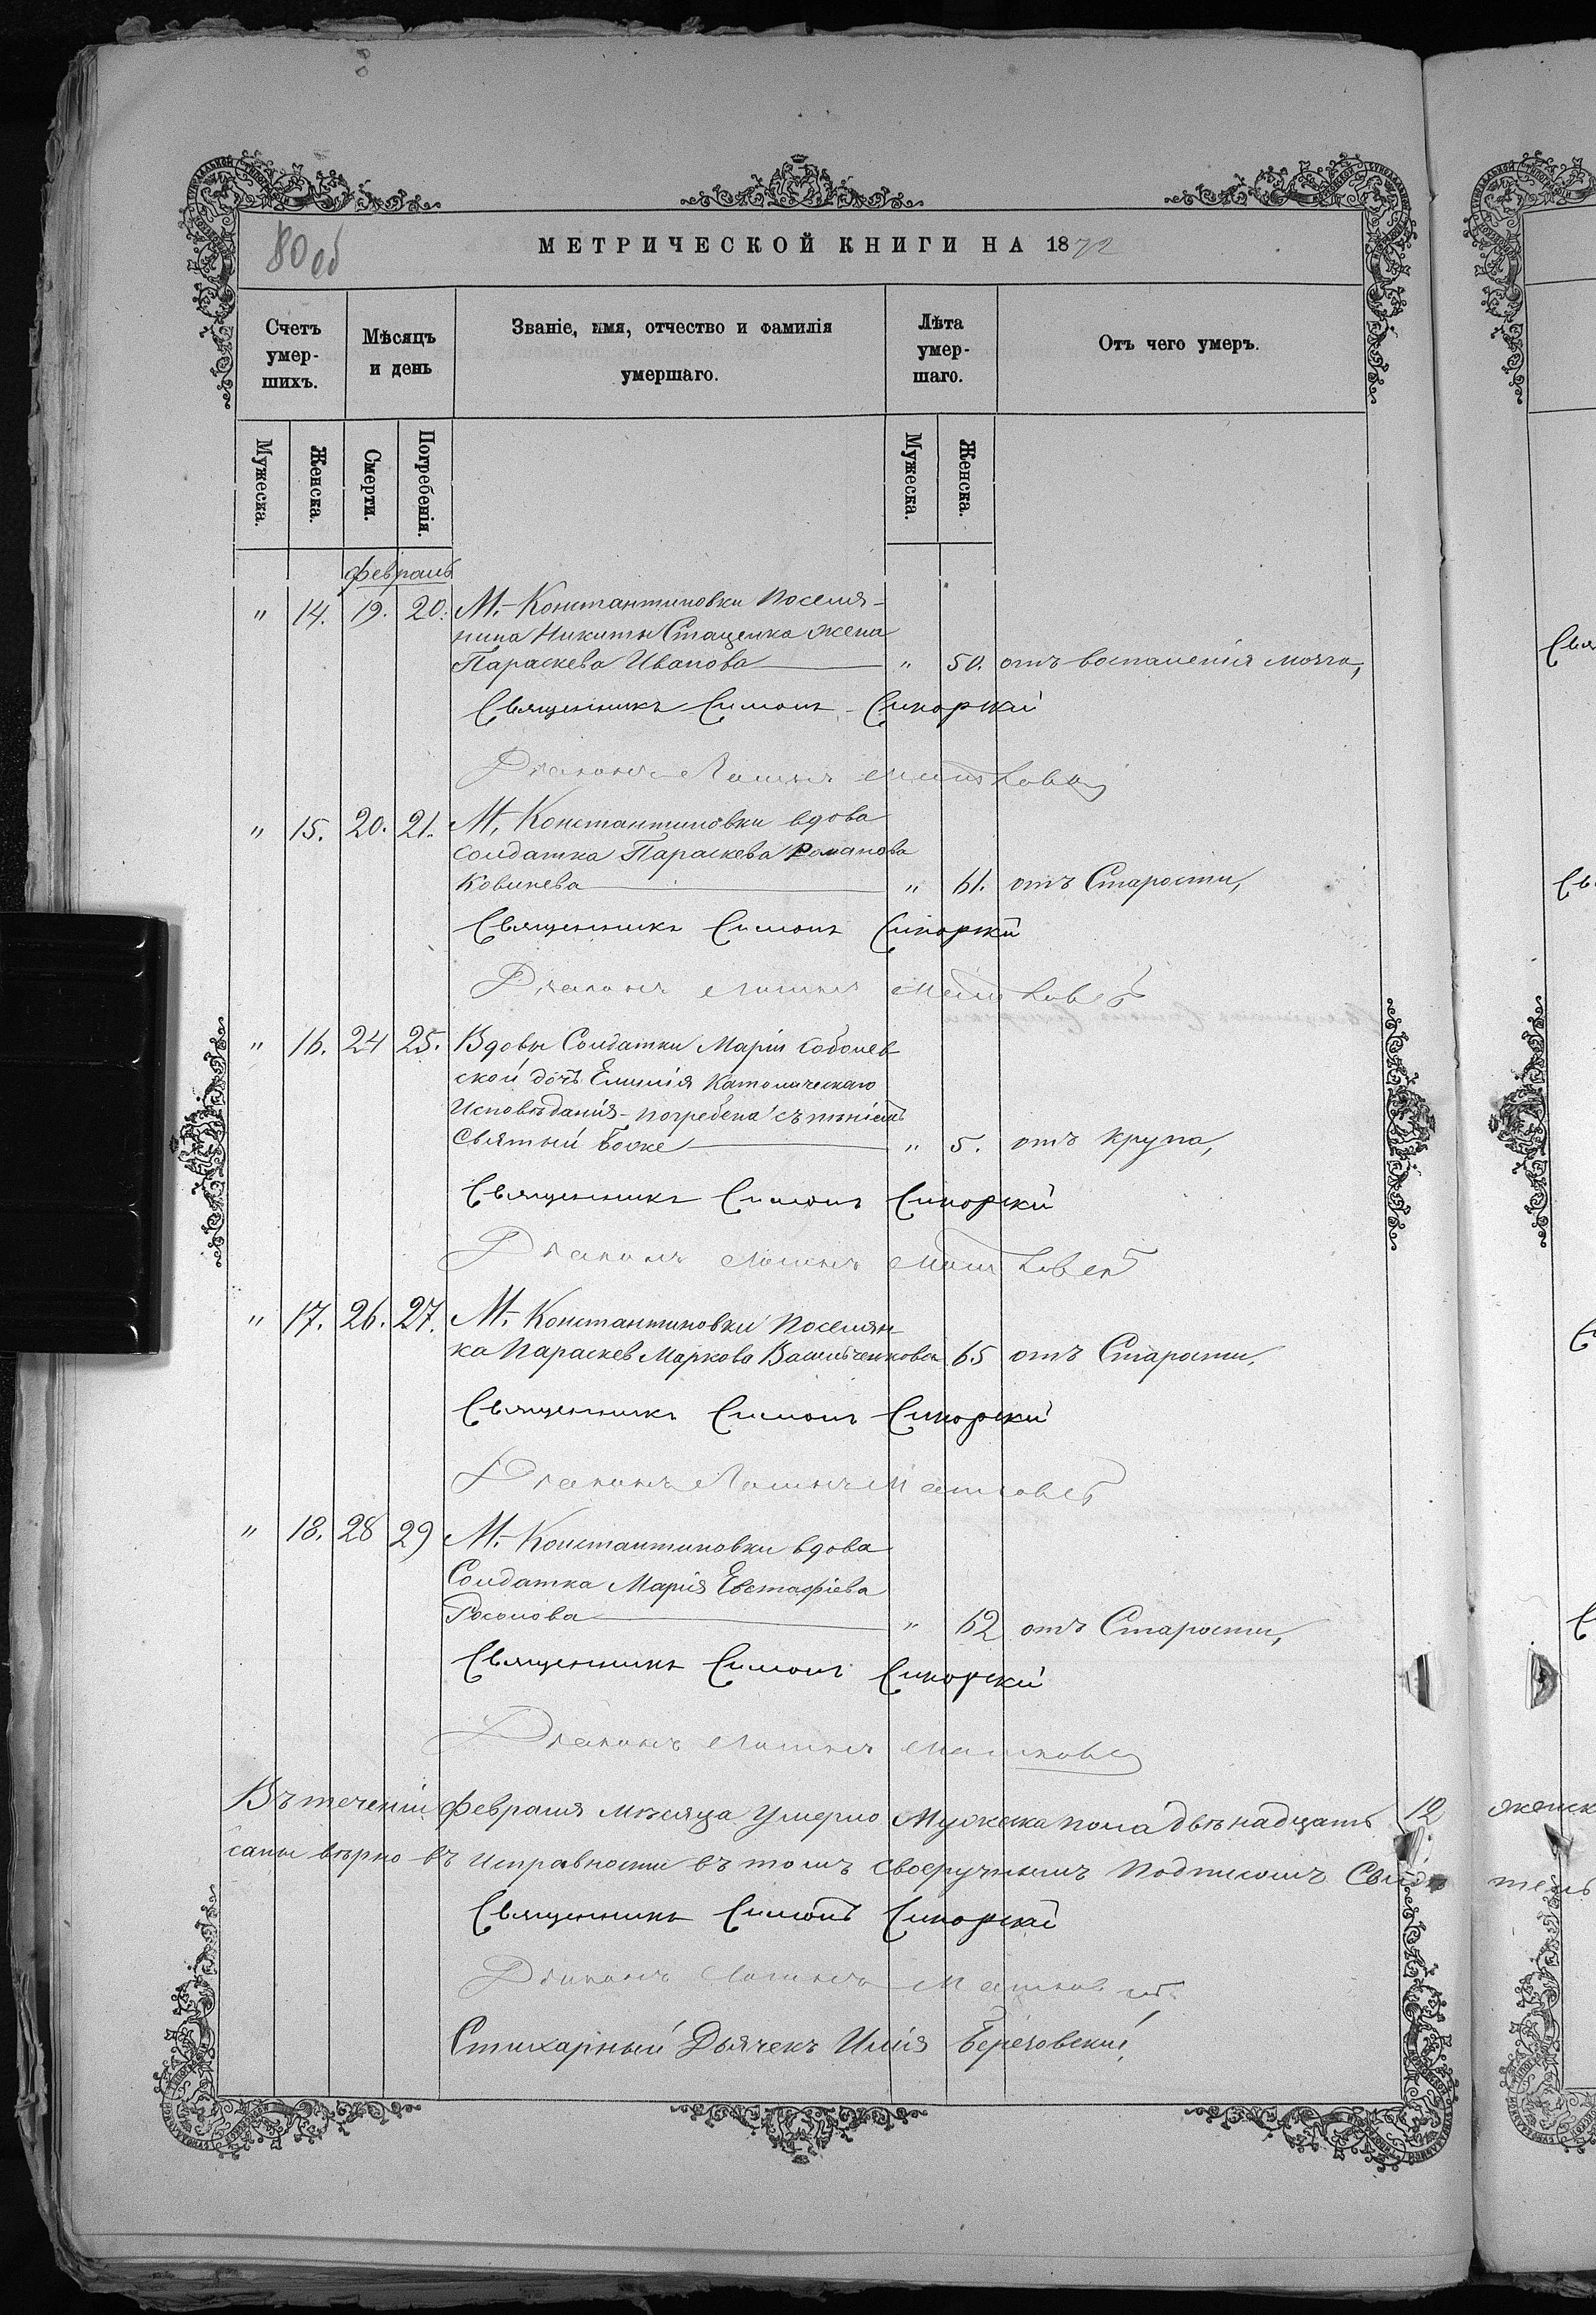 80 об
МЕТРИЧЕСКОЙ КНИГИ НА 1872
Счетъ умер-шихъ.
Мѣсяцъ и день
Званіе, имя, отчество и фамилія умершаго.
Лѣта умер-шаго.
Отъ чего умеръ.
Мужеска.
Женска.
Смерти.
Погребенія.
Мужеска.
Женска.
февраль
" 14. 19. 20. М. Константиновки поселя-
нина Никиты Стаценка жена
Параскева Иванова " 50. отъ воспаленія мозга,
Священникъ Симонъ Сикорскій
Діаконъ
" 15. 20. 21. М. Константиновки вдова
солдатка Параскева Романова
Ковинева " 61. отъ Старости,
Священникъ Симонъ Сикорскій
Діаконъ
" 16. 24 25. Вдовы Солдатки Маріи Соболев-
ской дочь Емилія Католическаго
Исповѣданія - погребена съ пѣніемъ
Святый Боже " 5. отъ крупа,
Священникъ Симонъ Сикорскій
Діаконъ
" 17. 26. 27. М. Константиновки поселян-
ка Параскев Маркова Васильченкова 65 отъ Старости,
Священникъ Симонъ Сикорскій
Діаконъ
" 18. 28 29 М. Константиновки вдова
Солдатка Марія Евстафіева
" 62 отъ Старости,
Священникъ Симонъ Сикорскій
Діаконъ
Въ теченіи февраля мѣсяца умерло Мужеска пола двѣнадцать 12 женск
саны вѣрно въ исправности въ томъ своеручнымъ подписомъ Свидѣ тель
Священникъ Симонъ Сикорскій
Діаконъ
Стихарный Дьячекъ Илія Береговскій,